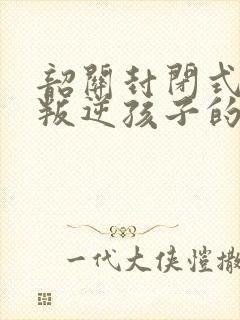 韶關封閉式
叛逆孩子的
一代大俠愷撒